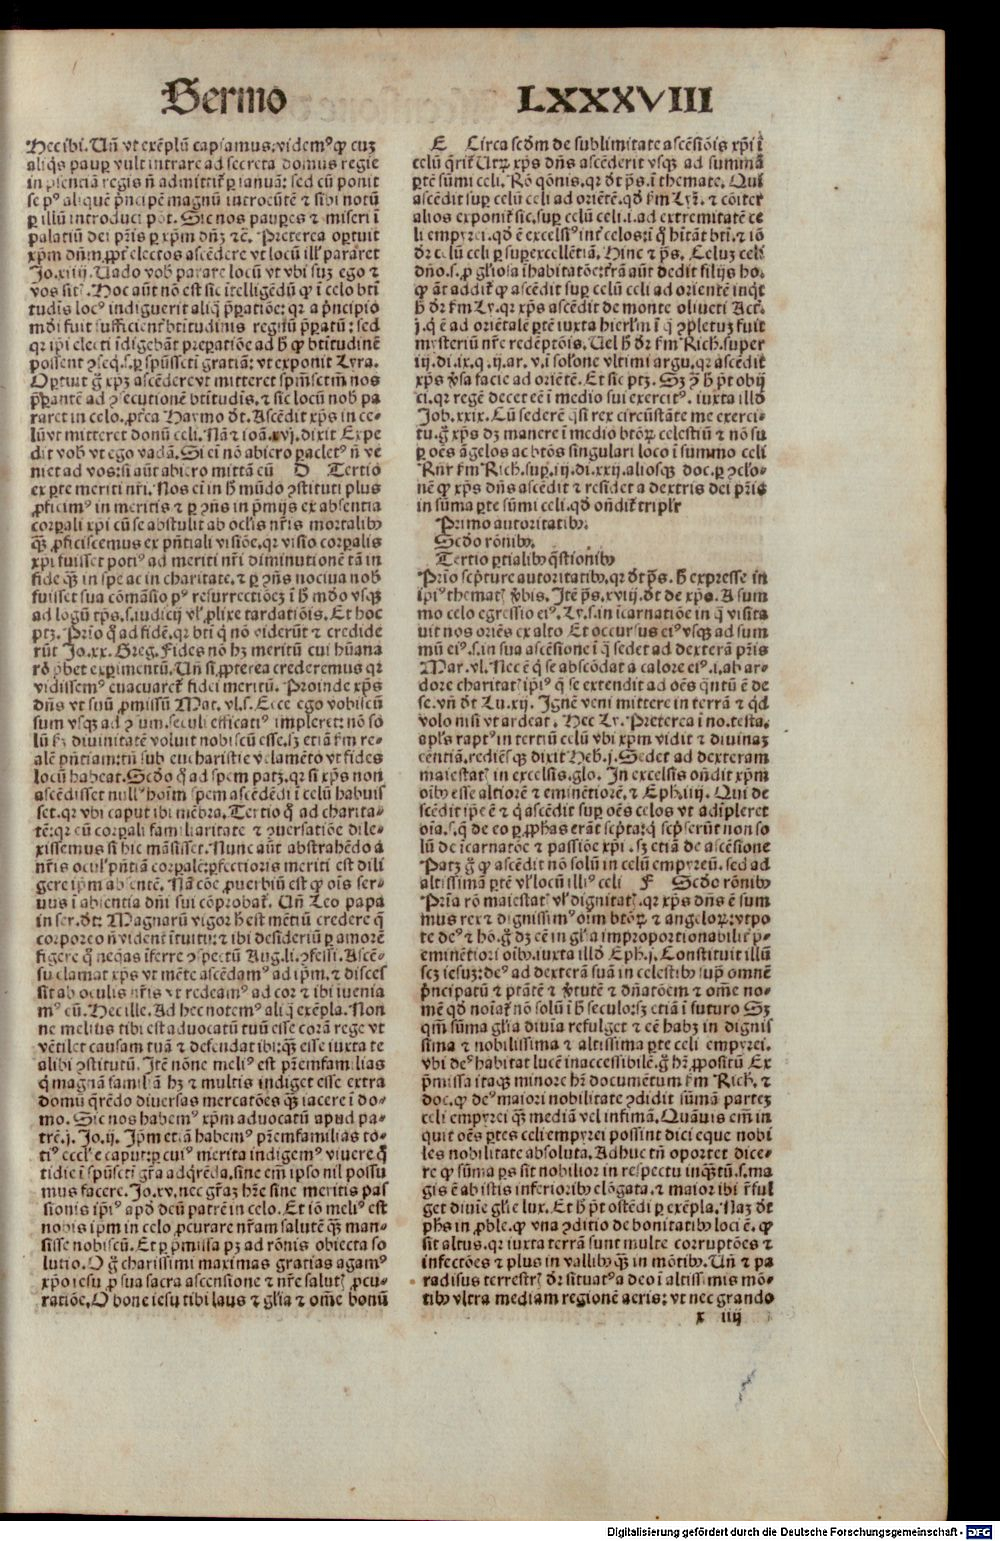 Sermo LXXXVIII
Hec ibi. Uñ vt exẽplũ capiamus: videmꝰ ꝙ cuʒ
aliq̃s pauꝑ vult intrare ad secreta domus regie
in p̃sentiã regis ñ admittit᷑ ꝑ ianuã: sed cũ ponit
se pꝰ aliquẽ p̃ncipẽ magnũ introeũtẽ ⁊ sibi notũ
ꝑ illũ introduci põt. Sic nos paupes ⁊ miseri ĩ
palatiũ dei pr̃is ꝑ xp̃m dñʒ ⁊c̃. Preterea oꝑtuit
xp̃m dñm ꝓpt̃ electos ascẽdere vt locũ ill᷑ pararet
Jo.xiiij. Uado vob̃ parare locũ vt vbi suʒ ego ⁊
vos sit᷑. Hoc aũt nõ est sic ĩtelligẽdũ ꝙ ĩ celo bt̃i
tudis locꝰ indiguerit aliq̃ p̃ꝑatiõe: qr a p̃ncipio
mũdi fuit sufficient᷑ bt̃itudinis regnũ p̃ꝑatũ: sed
qr ip̃i electi ĩdigebãt preꝑatiõe ad h̃ ꝙ bt̃itudinẽ
possent ꝯseq̃.s.ꝑ sp̃ussc̃ti gratiam: vt exponit Lyra.
Oꝑtuit g̃ xp̃ʒ ascẽdere vt mitteret sp̃m sc̃tm̃ nos
p̃ꝑantẽ ad ꝯsecutionẽ bt̃itudis, ⁊ sic locũ nob̃ pa
raret in celo. p̃t̃ea Haymo d̃t. Ascẽdit xp̃s in ce-
lũ vt mitteret donũ celi. Nã ⁊ ioã.xvj. dixit Expe
dit vob̃ vt ego vadã. Si em̃ nõ abiero ꝑacletꝰ ñ ve
niet ad vos: si aũt abiero mittã eũ D Tertio
ex ꝑte meriti nr̃i. Nos em̃ in h̃ mũdo ꝯstituti plus
ꝓficimꝰ in meritis ⁊ ꝑ ꝯñs in p̃mijs ex absentia
corꝑali xp̃i cũ se abstulit ab oclis nr̃is mortalibꝰ
q̃ʒ ꝓficiscemus ex p̃ntiali visiõe. qr visio corꝑalis
xp̃i fuisset potiꝰ ad meriti nr̃i diminutionẽ tã in
fide q̃ʒ in spe ac in charitate. ⁊ ꝑ ꝯñs nociua nob̃
fuisset sua cõmãsio pꝰ resurrectiõeʒ ĩ h̃ mũdo vsqʒ
ad logũ tp̃s.s.iudicij vl᷑ ꝓlixe tardatiõis. Et hoc
ptʒ. Prĩo q̃ ad fidẽ. qr bt̃i q̃ nõ viderũt ⁊ credide
rũt Jo.xx. Greg. Fides nõ hʒ meritũ cui hũana
rõ p̃bet exꝑimentũ. Uñ si ꝓpterea crederemus qr
vidissemꝰ euacuaret᷑ fidei meritũ. Proinde xp̃s
dñs vt suũ ꝓmissũ Mat. vl.s. Ecce ego vobiscũ
sum vsqʒ ad ꝯum.seculi efficatiꝰ impleret: nõ so
lũ ẜm diuinitatẽ voluit nobiscũ esse. sʒ etiã ẜm re-
alẽ p̃ntiam: tñ sub eucharistie velamẽto vt fides
locũ habeat. Secũdo q̃ ad spem patʒ. qr si xp̃s non
ascẽdisset nullꝰ hoĩm spem ascẽdẽdi ĩ celũ habuis
set. qr vbi caput ibi mẽbra. Tertio q̃ ad charita-
tẽ: qr cũ corꝑali familiaritate ⁊ ꝯuersatiõe dile-
xissemus si hic mãsisset. Nunc aũt abstrahẽdo a
nr̃is ocul᷑ p̃ntiã corꝑalẽ: ꝑfectioris meriti est dili
gere ip̃m absentẽ. Nã cõe ꝓuerbiũ est ꝙ oĩs ser-
uus ĩ absentia dñi sui cõprobat᷑. Uñ Leo papa
in ser. d̃t. Magnarũ vigor h̃ est mẽtiũ credere q̃
corporeo ñ vident ĩtuitu: ⁊ ibi desideriũ ꝑ amorẽ
figere q̃ neq̃as ĩferre ꝯspectũ Aug.li.ꝯfessi. Ascẽ-
su clamat xp̃s vt mẽte ascẽdamꝰ ad ip̃m. ⁊ disces
sit ab oculis nr̃is vt redeamꝰ ad cor ⁊ ibi iuenia
mꝰ eũ. Hec ille. Ad hec notemꝰ aliq̃ exẽpla. Non
ne melius tibi est aduocatũ tuũ esse corã rege vt
vẽtilet causam tuã ⁊ defendat ibi: q̃ʒ esse iuxta te
alibi ꝯstitutũ. Jtẽ nõne meliꝰ est pr̃emfamilias
q̃ magnã familiã hʒ ⁊ multis indiget esse extra
domũ q̃rẽdo diuersas mercatões q̃ʒ iacere ĩ do-
mo. Sic nos habemꝰ xp̃m aduocatũ apud pa-
trẽ.j. Jo.ij. Jp̃m etiã habemꝰ pr̃emfamilias to-
tiꝰ eccl᷑e caput: ꝑ cuiꝰ merita indigemꝰ viuere q̃
tidie ĩ sp̃ussc̃ti gr̃a adq̃rẽda. sine em̃ ipso nil possu
mus facere. Jo.xv. nec gr̃aʒ hr̃e sine meritis pas
sionis ip̃iꝰ apd̃ deũ patrẽ in celo. Et iõ meliꝰ est
nobis ip̃m in celo ꝓcurare nr̃am salutẽ q̃ʒ man-
sisse nobiscũ. Et ꝑ p̃missa pʒ ad rõnis obiecta so
lutio. O g̃ charissimi maximas gratias agamꝰ
xp̃o iesu ꝓ sua sacra ascensione ⁊ nr̃e salut᷑ ꝓcu-
ratiõe. O bone iesu tibi laus ⁊ gl̃ia ⁊ om̃e bonũ
E Circa scd̃m de sublimitate ascẽsiõis xp̃i ĩ
celũ q̃rit᷑ Utꝝ xp̃s dñs ascẽderit vsqʒ ad summã
ꝑtẽ sũmi celi. Rõ q̃onis. qr d̃t p̃s. ĩ themate. Qui
ascẽdit suꝑ celũ celi ad oriẽtẽ. qd̃ ẜm Lyr̃. ⁊ cõiter
alios exponit᷑ sic. suꝑ celũ celi.i.ad extremitatẽ ce
li empyrei. qd̃ ẽ excelsiꝰ int᷑ celos: ĩ q̃ hĩtãt bt̃i. ⁊ iõ
d̃r celũ celi ꝑ suꝑexcellẽtiã. Hinc ⁊ p̃s. Celuʒ celi
dño.s.ꝓ gl̃iosa ĩhabitatõe: tr̃ã aũt dedit filijs ho.
ꝙ ãt addit᷑ ꝙ ascẽdit suꝑ celũ celi ad orientẽ inq̃t
h̃ d̃r ẜm Ly. qr xp̃s ascẽdit de monte oliueti Act᷑.
j. q̃ ẽ ad oriẽtalẽ ꝑtẽ iuxta hierl̃m ĩ q̃ ꝯpletuʒ fuit
mysteriũ nr̃e redẽptõis. Uel h̃ d̃r ẜm Rich. super
iij.di.ix.q.ij.ar.v. ĩ solõne vltimi argu. qr ascẽdit
xp̃s v̓sa facie ad oriẽtẽ. Et sic ptʒ. Sʒ ꝯ h̃ p̃t obij
ci. qr regẽ decet eẽ ĩ medio sui exercitꝰ. iuxta illd̃
Job.xxix. Cũ sederẽ q̃si rex circũstãte me exerci-
tu. g̃ xp̃s dʒ manere ĩ medio bt̃oꝝ celestiũ ⁊ nõ su
ꝑ oẽs ãgelos ac bt̃os singulari loco ĩ summo celi
Rñr ẜm Rich. suꝑ.iij.di.xxij. aliosqʒ doc. ꝑ ꝯclo-
nẽ ꝙ xp̃s dñs ascẽdit ⁊ residet a dextris dei pr̃is
in sũma ꝑte sũmi celi. qd̃ oñdit᷑ triplr̃
Primo autoritatibꝰ.
Scd̃o rõnibꝰ.
Tertio ꝑtialibꝰ q̃stionibꝰ
Prĩo scp̃ture autoritatibꝰ. qr d̃t p̃s. h̃ expresse in
ip̃iꝰ themat᷑ v̓bis. Jtẽ p̃s.xviij. d̃t de xp̃o. A sum
mo celo egressio eiꝰ. Ly.s.in ĩcarnatiõe in q̃ visita
uit nos oriẽs ex alto Et occursus eiꝰ vsqʒ ad sum
mũ eiꝰ.s.in sua ascẽsione ĩ q̃ sedet ad dexterã pr̃is
Mar. vl. Nec ẽ q̃ se abscõdat a calore eiꝰ.i.ab ar-
dore charitat᷑ ip̃iꝰ q̃ se extendit ad oẽs q̃ntũ ẽ de
se. vñ d̃t Lu.xij. Jgnẽ veni mittere in terrã ⁊ qd̃
volo nisi vt ardeat. Hec Ly. Preterea ĩ no. testa.
apl̃s raptꝰ in tertiũ celũ vbi xp̃m vidit ⁊ diuinaʒ
cẽntiã. rediẽsqʒ dixit Heb.j. Sedet ad dexteram
maiestat᷑ in excelsis. glo. Jn excelsis oñdit xp̃m
oĩbꝰ esse altiorẽ ⁊ eminẽtiorẽ. ⁊ Eph.iiij. Qui de
scẽdit ip̃e ẽ ⁊ q̃ ascẽdit suꝑ oẽs celos vt adĩpleret
oĩa.s.q̃ de eo ꝑ ꝓphas erãt scp̃ta: q̃ scp̃serũt non so
lũ de ĩcarnatõe ⁊ passiõe xp̃i. sʒ etiã de ascẽsione
Patʒ g̃ ꝙ ascẽdit nõ solũ in celũ empyreũ. sed ad
altissimã ꝑtẽ vl᷑ locũ illiꝰ celi F Scd̃o rõnibꝰ
Prĩa rõ maiestat᷑ vl᷑ dignitat᷑. qr xp̃s dñs ẽ sum
mus rex ⁊ dignissimꝰ oĩm bt̃oꝝ ⁊ angeloꝝ: vtpo
te deꝰ ⁊ hõ. g̃ dʒ eẽ in gl̃ia improportionabilit᷑ p̃-
eminẽtiori oĩbꝰ. iuxta illd̃ Eph.j. Constituit illũ
scʒ iesuʒ: deꝰ ad dexterã suã in celestibꝰ sup̃ omnẽ
p̃ncipatũ ⁊ p̃tãtẽ ⁊ v̓tutẽ ⁊ dñatõem ⁊ om̃e no-
mẽ qd̃ noĩat᷑ nõ solũ ĩ h̃ seculo: sʒ etiã ĩ futuro Sʒ
qm̃ sũma gl̃ia diuĩa refulget ⁊ eẽ habʒ in dignis
sima ⁊ nobilissima ⁊ altissima ꝑte celi empyrei.
vbi deꝰ habitat lucẽ inaccessibilẽ. g̃ hr̃ ꝓpositũ Ex
p̃missa itaqʒ minore hr̃ documẽtum ẜm Rich. ⁊
doc. ꝙ deꝰ maiori nobilitate ꝯdidit sũmã parteʒ
celi empyrei q̃ʒ mediã vel infimã. Quãuis em̃ in
quit oẽs ꝑtes celi empyrei possint dici eque nobi
les nobilitate absoluta. Adhuc tñ oportet dice-
re ꝙ sũma ꝑs sit nobilior in respectu inq̃ʒtũ.s.ma
gis ẽ ab istis inferioribꝰ elõgata. ⁊ maior ibi r̃ful
get diuĩe gl̃ie lux. Et h̃ p̃t ostẽdi ꝑ exẽpla. Naʒ d̃t
ph̃s in ꝓble. ꝙ vna ꝯditio de bonitatibꝰ loci ẽ. ꝙ
sit altus. qr iuxta terrã sunt multe corruptões ⁊
infectões ⁊ plus in vallibꝰ q̃ʒ in mõtibꝰ. Uñ ⁊ pa
radisus terrestr᷑ d̃r situatꝰ a deo ĩ altissimis mõ-
tibꝰ vltra mediam regionẽ aeris: vt nec grando
x iiij
Digitalisierung gefördert durch die Deutsche Forschungsgemeinschaft - DFG